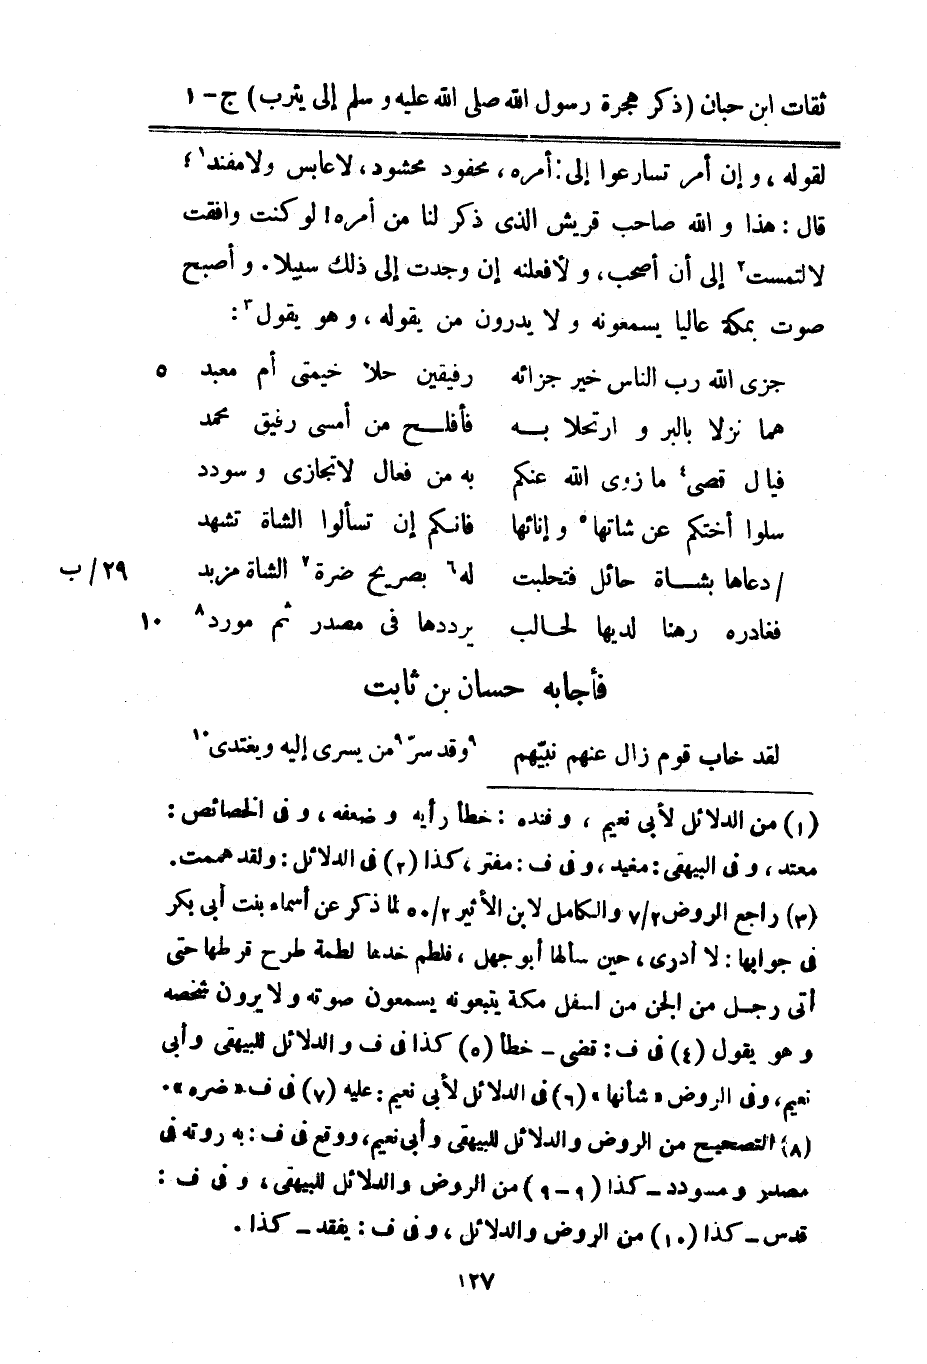 ثقات ابن حبان (ذكر هجرة رسول الله صلى الله عليه و سلم إلى يثرب) ج - ١
لقوله ، و إن أمر تسارعوا إلى : أمره ، محفود محشود ، لا عابس ولا مفند ١ ؛
قال : هذا و الله صاحب قريش الذى ذكر لنا من أمره ! لو كنت وافقت
لالتمست ٢ إلى أن أصحب ، و لأفعلنه إن وجدت إلى ذلك سبيلا . و أصبح
صوت بمكة عاليا يسمعونه و لا يدرون من يقوله ، و هو يقول ٣ :
جزى الله رب الناس خير جزائه رفيقين حلا خيمتى أم معبد ٥
هما نزلا بالبر و ارتحلا بـــه فأفلـــح من أمسى رفيق محمد
فيال قصى ٤ ما زوى الله عنكم به من فعال لا تجازى و سودد
سلوا أختكم عن شاتها ٥ و إنائها فانكم إن تسألوا الشاة تشهد
/ دعاها بشـــاة حائل فتحلبت له ٦ بصريح ضرة ٧ الشاة مزبد ٢٩/ ب
فغادره رهنا لديها لحـالب يرددها فى مصدر ثم مورد ٨ ١٠
فأجابه حسان بن ثابت
لقد خاب قوم زال عنهم نبيّهم ٩ وقد سرّ ٩ من يسرى إليه ويغتدى ١٠
(١) من الدلائل لأبى نعيم ، و فنده : خطأ رأيه و ضعفه ، و فى الخصائص :
معتد ، و فى البيهقى : مفيد ، و فى ف : مفتر ، كذا (٢) فى الدلائل : ولقد هممت .
(٣) راجع الروض ٧/٢ و الكامل لابن الأثير ٥٠/٢ لما ذكر عن أسماء بنت أبى بكر
فى جوابها : لا أدرى ، حين سألها أبو جهل ، فلطم خدها لطمة طرح قرطها حتى
أتى رجـل من الجن من اسفل مكة يتبعونه يسمعون صوته و لا يرون شخصه
و هو يقول (٤) فى ف : قضى - خطأ (٥) كذا فى ف و الدلائل للبيهقى و أبى
نعيم ، وفى الروض « شأنها » (٦) فى الدلائل لأبى نعيم : عليه (٧) فى ف « ضره » .
(٨) التصحيح من الروض والدلائل للبيهقى و أبى نعيم ، ووقع فى ف : به روته فى
مصدر و مسودد - كذا (٩ - ٩) من الروض والدلائل للبيهقى ، و فى ف :
قدس - كذا (١٠) من الروض والدلائل ، و فى ف : يفقد - كذا .
١٢٧